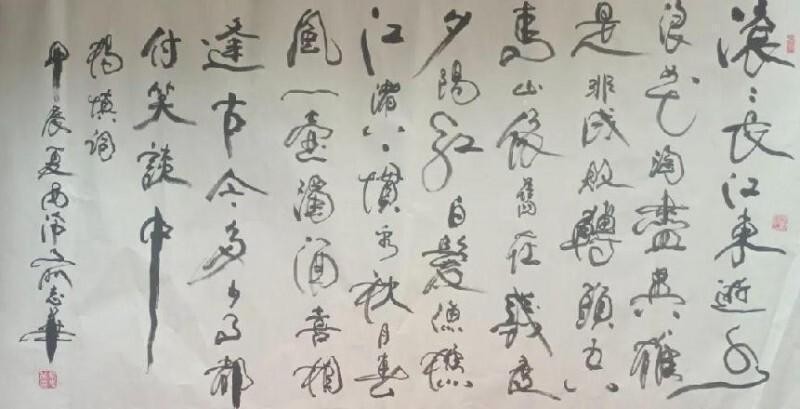 滚々長江東逝水
浪花淘盡英雄
是非成敗轉頭空
青山依舊在幾度
夕陽紅白髮漁樵
江渚上慣看秋月春
風一壺濁酒喜相
逢古今多少事都
付笑談中
楊慎詞
甲辰夏志華